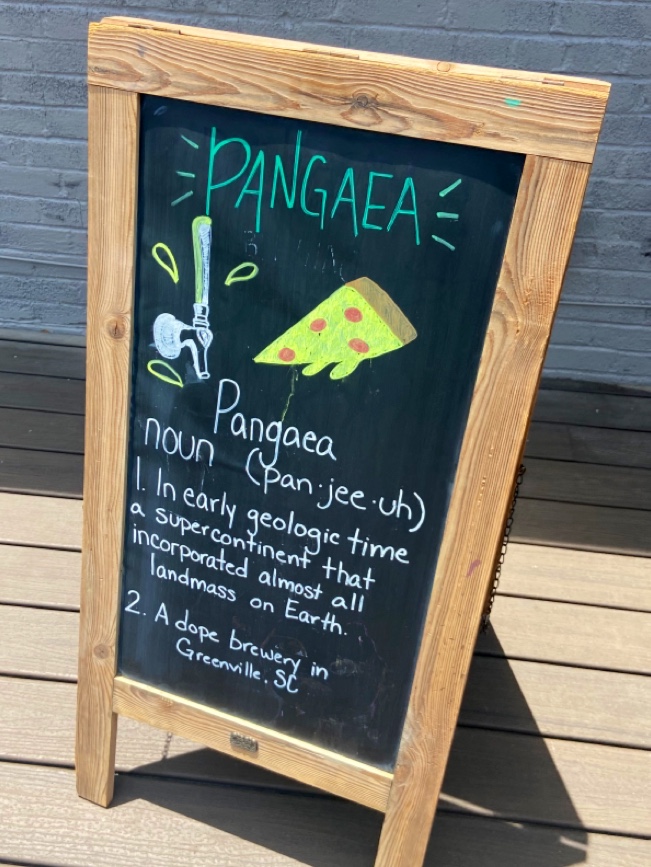 PANGAEA
Pangaea
noun (pan·jee·uh)
1. In early geologic time
a supercontinent that
incorporated almost all
landmass on Earth.
2. A dope brewery in
Greenville, SC